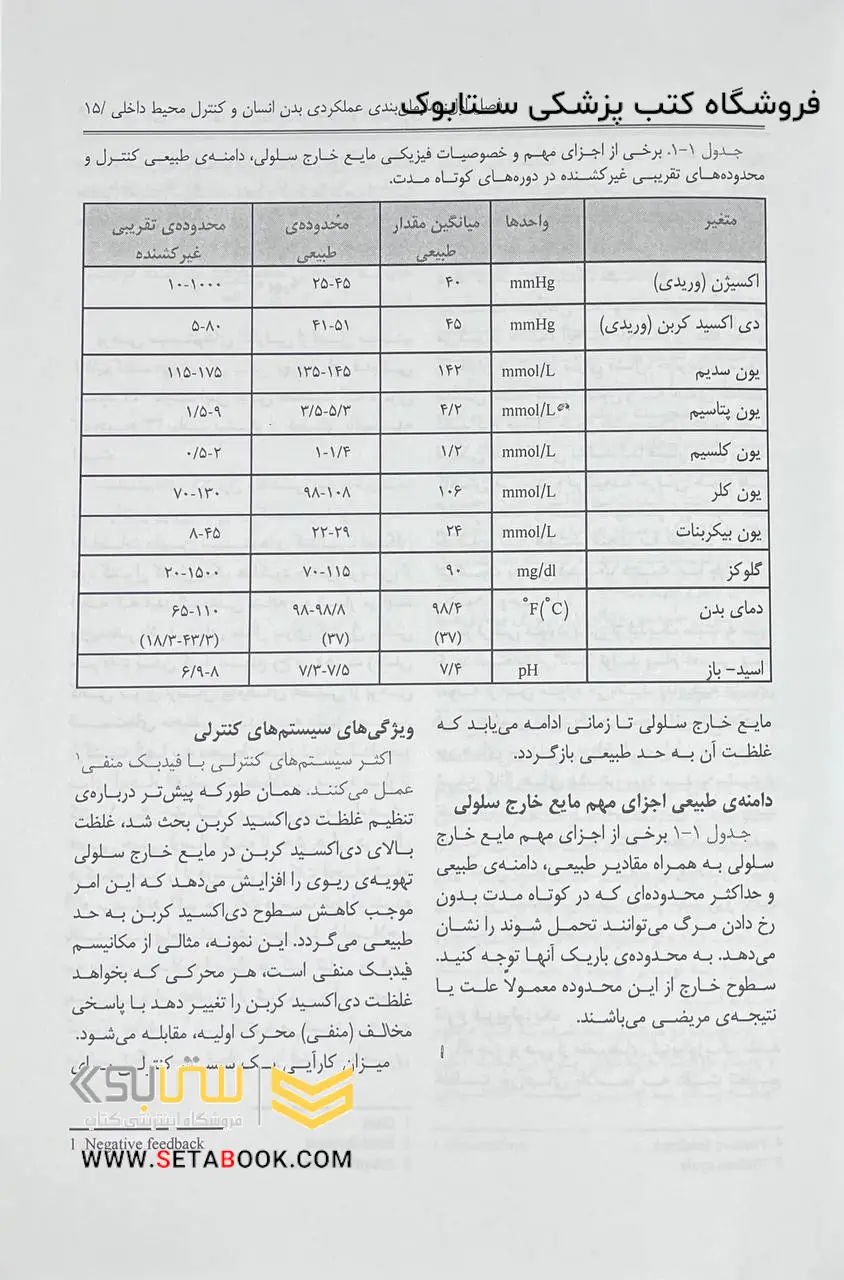 فروشگاه کتب پزشکی ستابوک
بندی عملکردی بدن انسان و کنترل محیط داخلی /۱۵
جدول ۱-۱. برخی از اجزای مهم و خصوصیات فیزیکی مایع خارج سلولی، دامنه‌ی طبیعی کنترل و
محدوده‌های تقریبی غیرکشنده در دوره‌های کوتاه مدت.
متغیر واحدها میانگین مقدار طبیعی محدوده‌ی طبیعی محدوده‌ی تقریبی غیرکشنده
اکسیژن (وریدی) mmHg ۴۰ ۲۵-۴۵ ۱۰-۱۰۰۰
دی اکسید کربن (وریدی) mmHg ۴۵ ۴۱-۵۱ ۵-۸۰
یون سدیم mmol/L ۱۴۲ ۱۳۵-۱۴۵ ۱۱۵-۱۷۵
یون پتاسیم mmol/L ۴/۲ ۳/۵-۵/۳ ۱/۵-۹
یون کلسیم mmol/L ۱/۲ ۱-۱/۴ ۰/۵-۲
یون کلر mmol/L ۱۰۶ ۹۸-۱۰۸ ۷۰-۱۳۰
یون بیکربنات mmol/L ۲۴ ۲۲-۲۹ ۸-۴۵
گلوکز mg/dl ۹۰ ۷۰-۱۱۵ ۲۰-۱۵۰۰
دمای بدن °F(°C) ۹۸/۴ ۹۸-۹۸/۸ ۶۵-۱۱۰
(۳۷) (۳۷) (۱۸/۳-۴۳/۳)
اسید- باز pH ۷/۴ ۷/۳-۷/۵ ۶/۹-۸
مایع خارج سلولی تا زمانی ادامه می‌یابد که
غلظت آن به حد طبیعی بازگردد.
دامنه‌ی طبیعی اجزای مهم مایع خارج سلولی
جدول ۱-۱ برخی از اجزای مهم مایع خارج
سلولی به همراه مقادیر طبیعی، دامنه‌ی طبیعی
و حداکثر محدوده‌ای که در کوتاه مدت بدون
رخ دادن مرگ می‌توانند تحمل شوند را نشان
می‌دهد. به محدوده‌ی باریک آنها توجه کنید.
سطوح خارج از این محدوده معمولاً علت یا
نتیجه‌ی مریضی می‌باشند.
ویژگی‌های سیستم‌های کنترلی
اکثر سیستم‌های کنترلی با فیدبک منفی۱
عمل می‌کنند. همان طورکه پیش‌تر درباره‌ی
تنظیم غلظت دی‌اکسید کربن بحث شد، غلظت
بالای دی‌اکسید کربن در مایع خارج سلولی
تهویه‌ی ریوی را افزایش می‌دهد که این امر
موجب کاهش سطوح دی‌اکسید کربن به حد
طبیعی می‌گردد. این نمونه، مثالی از مکانیسم
فیدبک منفی است، هر محرکی که بخواهد
غلظت دی‌اکسید کربن را تغییر دهد با پاسخی
مخالف (منفی) محرک اولیه، مقابله می‌شود.
میزان کارآیی یک سیستم کنترلی برای
ستابوک
فروشگاه اینترنتی کتاب
1 Negative feedback
WWW.SETABOOK.COM